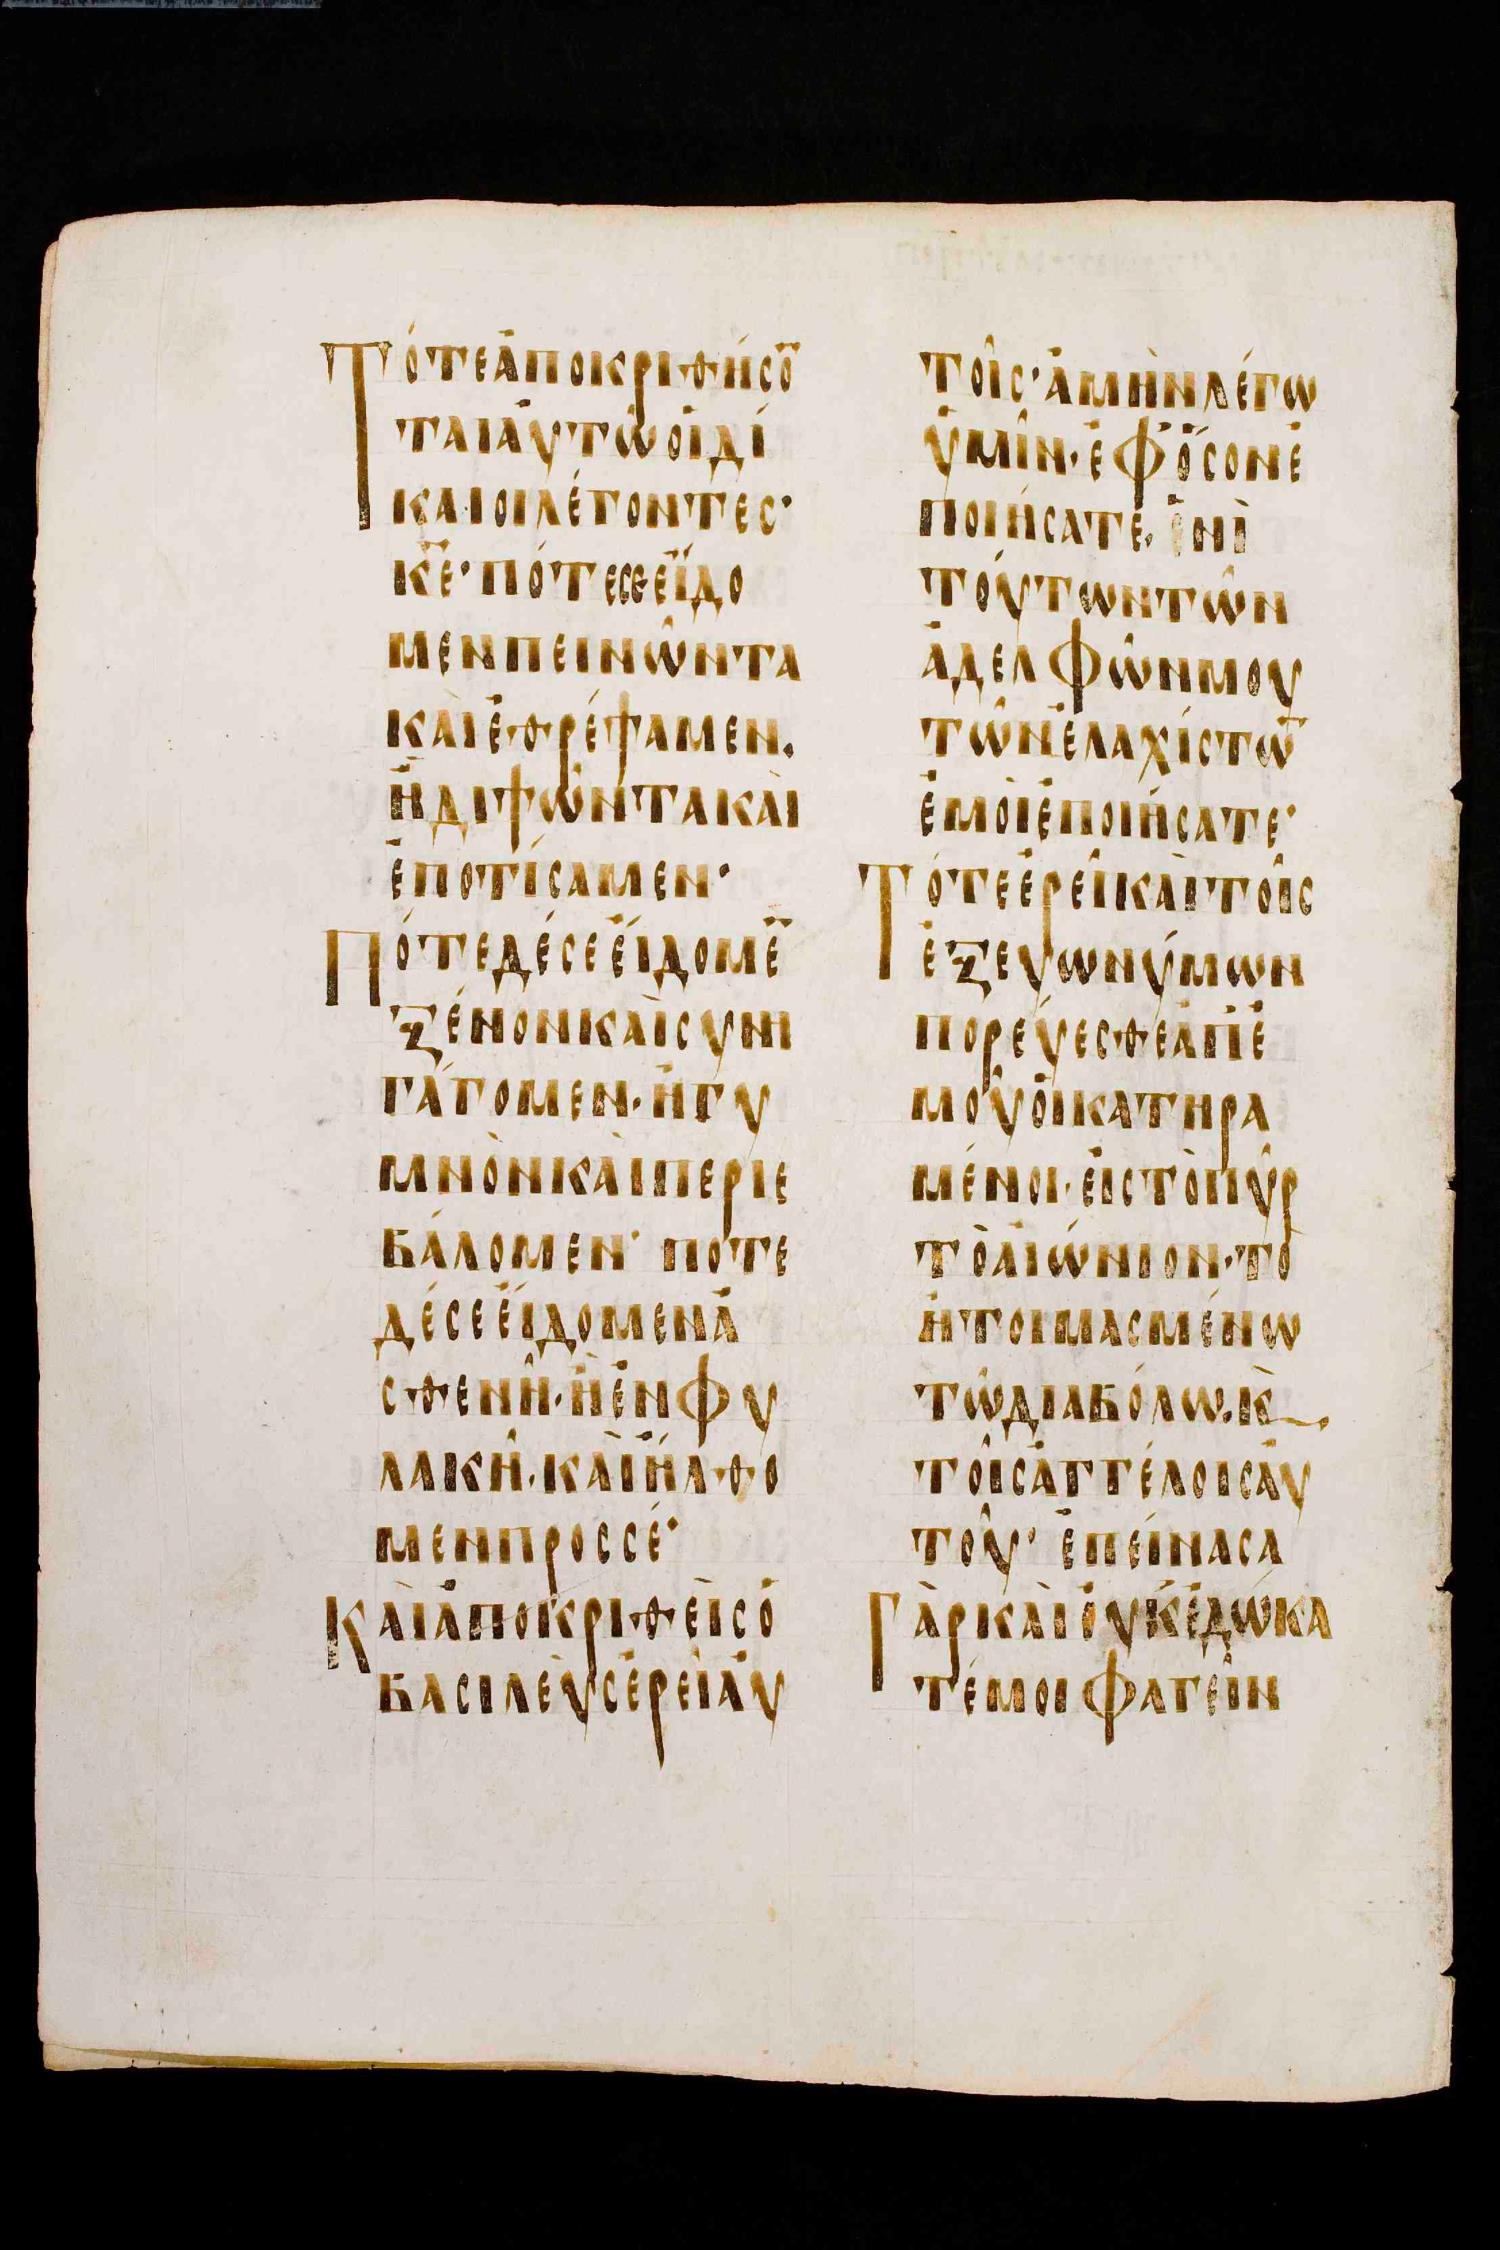 Τότε ἀποκριθήσο̅
ται αὐτῶ οἱ δί
καιοι λέγοντες·
κ̅ε̅· πότε σε εἴδο
μεν πεινῶντα
καὶ ἐθρέψαμεν.
ἢ διψῶντα καὶ
ἐποτίσαμεν·
Πότε δέ σε εἴδομε̅
ξένον καὶ συνη
γάγομεν· ἢ γυ
μνὸν καὶ περιε
βάλομεν· ποτε
δέ σε εἴδομεν ἀ
σθενῆ· ἢ ἐν φυ
λακῆ· καὶ ἤλθο
μεν προς σέ·
Καὶ ἀποκριθεὶς ὁ
βασιλεὺς ἐρεῖ αὐ
τοῖς· ἀμὴν λέγω
ὑμῖν· ἐφ ὅσον ἐ
ποιήσατε· ἑνὶ
τούτων τῶν
ἀδελφῶν μου
τῶν ἐλαχίστω̅
ἐμοὶ ἐποιήσατε·
Τότε ἐρεῖ καὶ τοῖς
ἐξ εὐωνύμων
πορεύεσθε ἀπ ἐ
μοῦ οἱ κατηρα
μένοι· εἰς τὸ πῦρ
τὸ αἰώνιον· το
ἡτοιμασμένω
τῶ διαβόλω· κ̀
τοῖς ἀγγέλοις αὐ
τοῦ· ἐπείνασα
Γὰρ καὶ οὐκ ἐδώκα
τέ μοι φαγεῖν